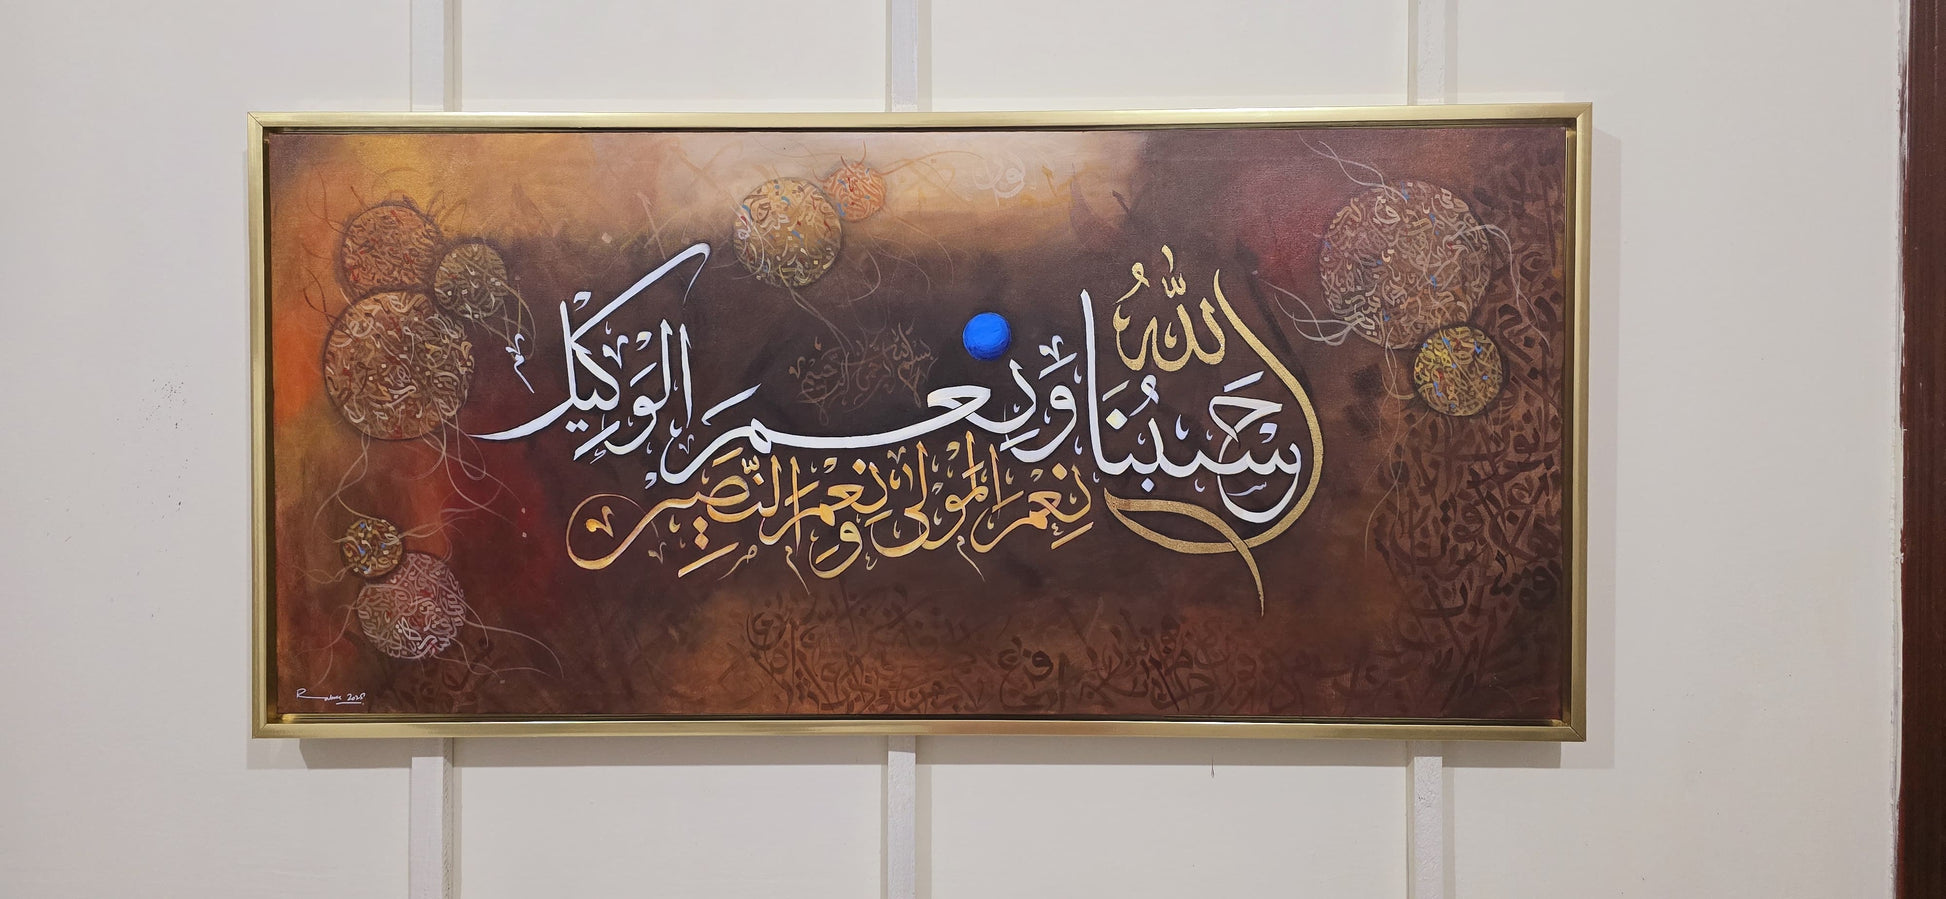 حَسْبُنَا اللّٰهُ وَنِعْمَ الْوَكِيلُ
نِعْمَ الْمَوْلَى وَنِعْمَ النَّصِيرُ
بسم الله الرحمن الرحيم
2025